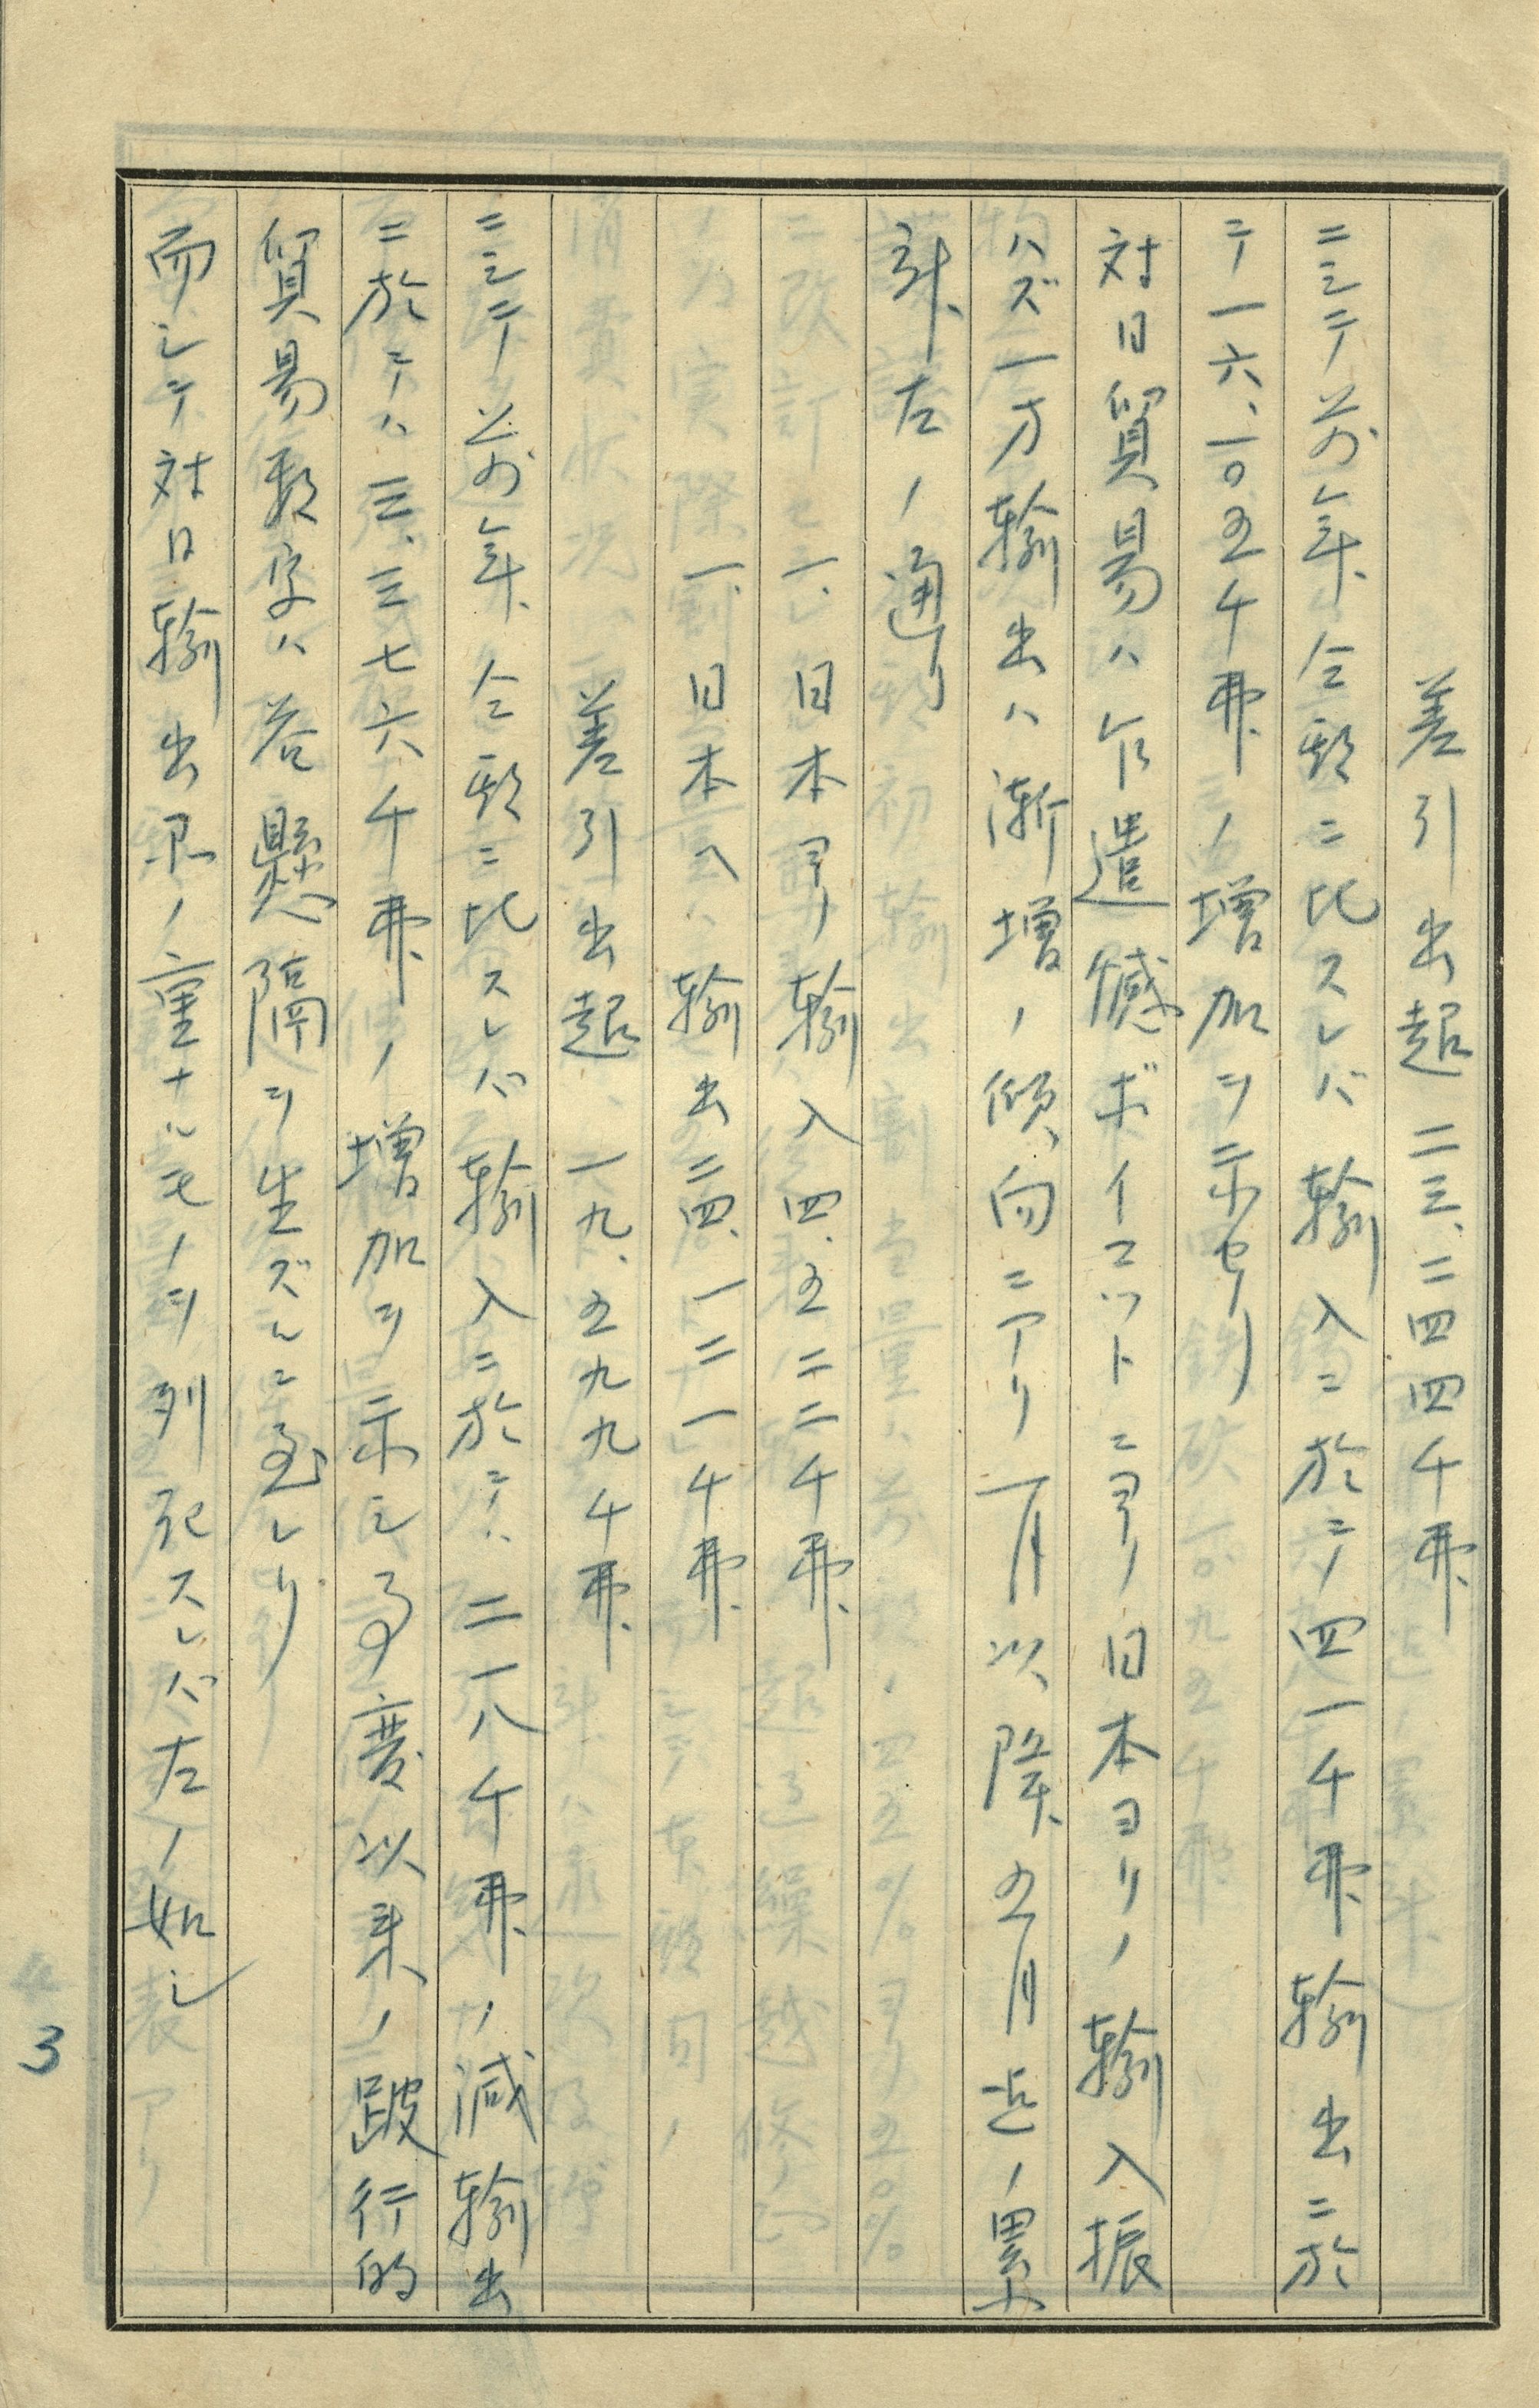 差引出超 二三、二四四千弗、
ニシテ前年、仝期ニ比スレバ輸入ニ於テ四一千弗、輸出ニ於
テ一六、一〇五千弗、ノ増加ヲ示セリ
対日貿易ハ乍遺憾ボイコットニヨリ日本ヨリノ輸入振
ハズ一方輸出ハ漸増ノ傾向ニアリ一月以降五月迄ノ累
計、左ノ通リ
一、日本ヨリ輸入 四、五二二千弗、
一、日本ヘ輸出 二四、一二一千弗、
差引出超 一九、五九九千弗、
ニシテ前年、仝期ニ比スレバ輸入ニ於テハ二一八千弗、ノ減輸出
ニ於テハ三、三七六千弗、ノ増加ヲ示シ事変以来ノ跛行的
貿易数字ハ益懸隔ヲ生ズルニ至レリ
而シテ対日輸出品ノ重ナルモノヲ列記スレバ左ノ如シ
3